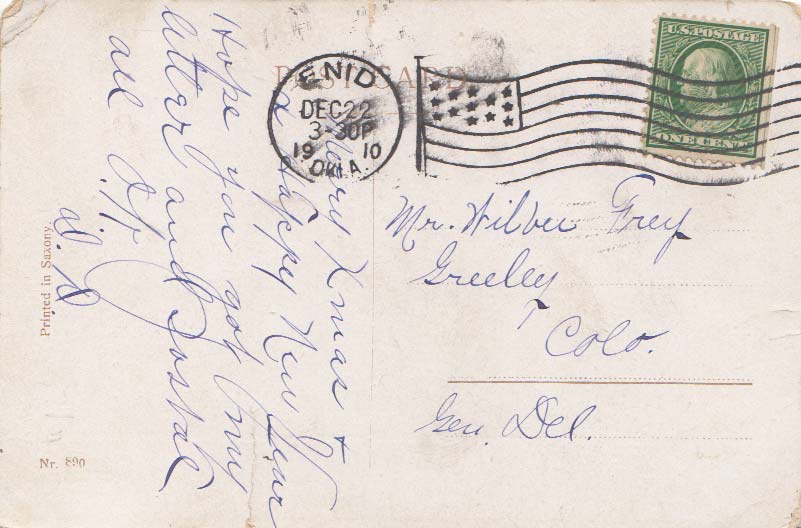 POST CARD
ENID
DEC 22
3-30P
1910
OKLA.
U.S. POSTAGE
ONE CENT
Merry Xmas +
a Happy New Year
Hope you got my
letter and Postal
all
Mr. Wilber Frey
Greeley,
Colo.
Gen. Del.
Printed in Saxony.
Nr. 890